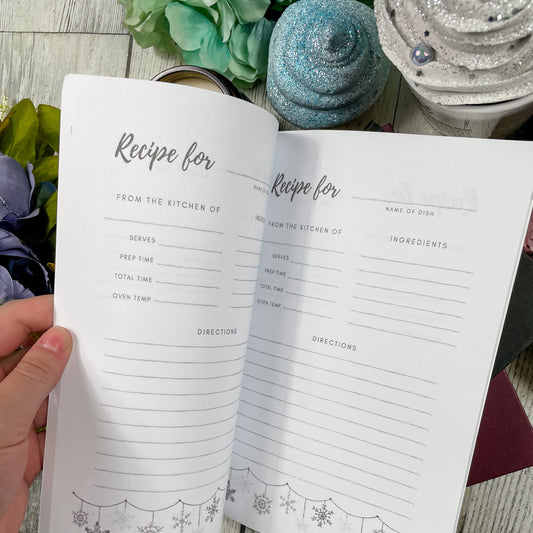 Recipe for
NAME O
FROM THE KITCHEN OF
SERVES
PREP TIME
TOTAL TIME
OVEN TEMP
DIRECTIONS
Recipe for
NAME OF DISH
FROM THE KITCHEN OF
INGREDIENTS
SERVES
PREP TIME
TOTAL TIME
OVEN TEMP
DIRECTIONS